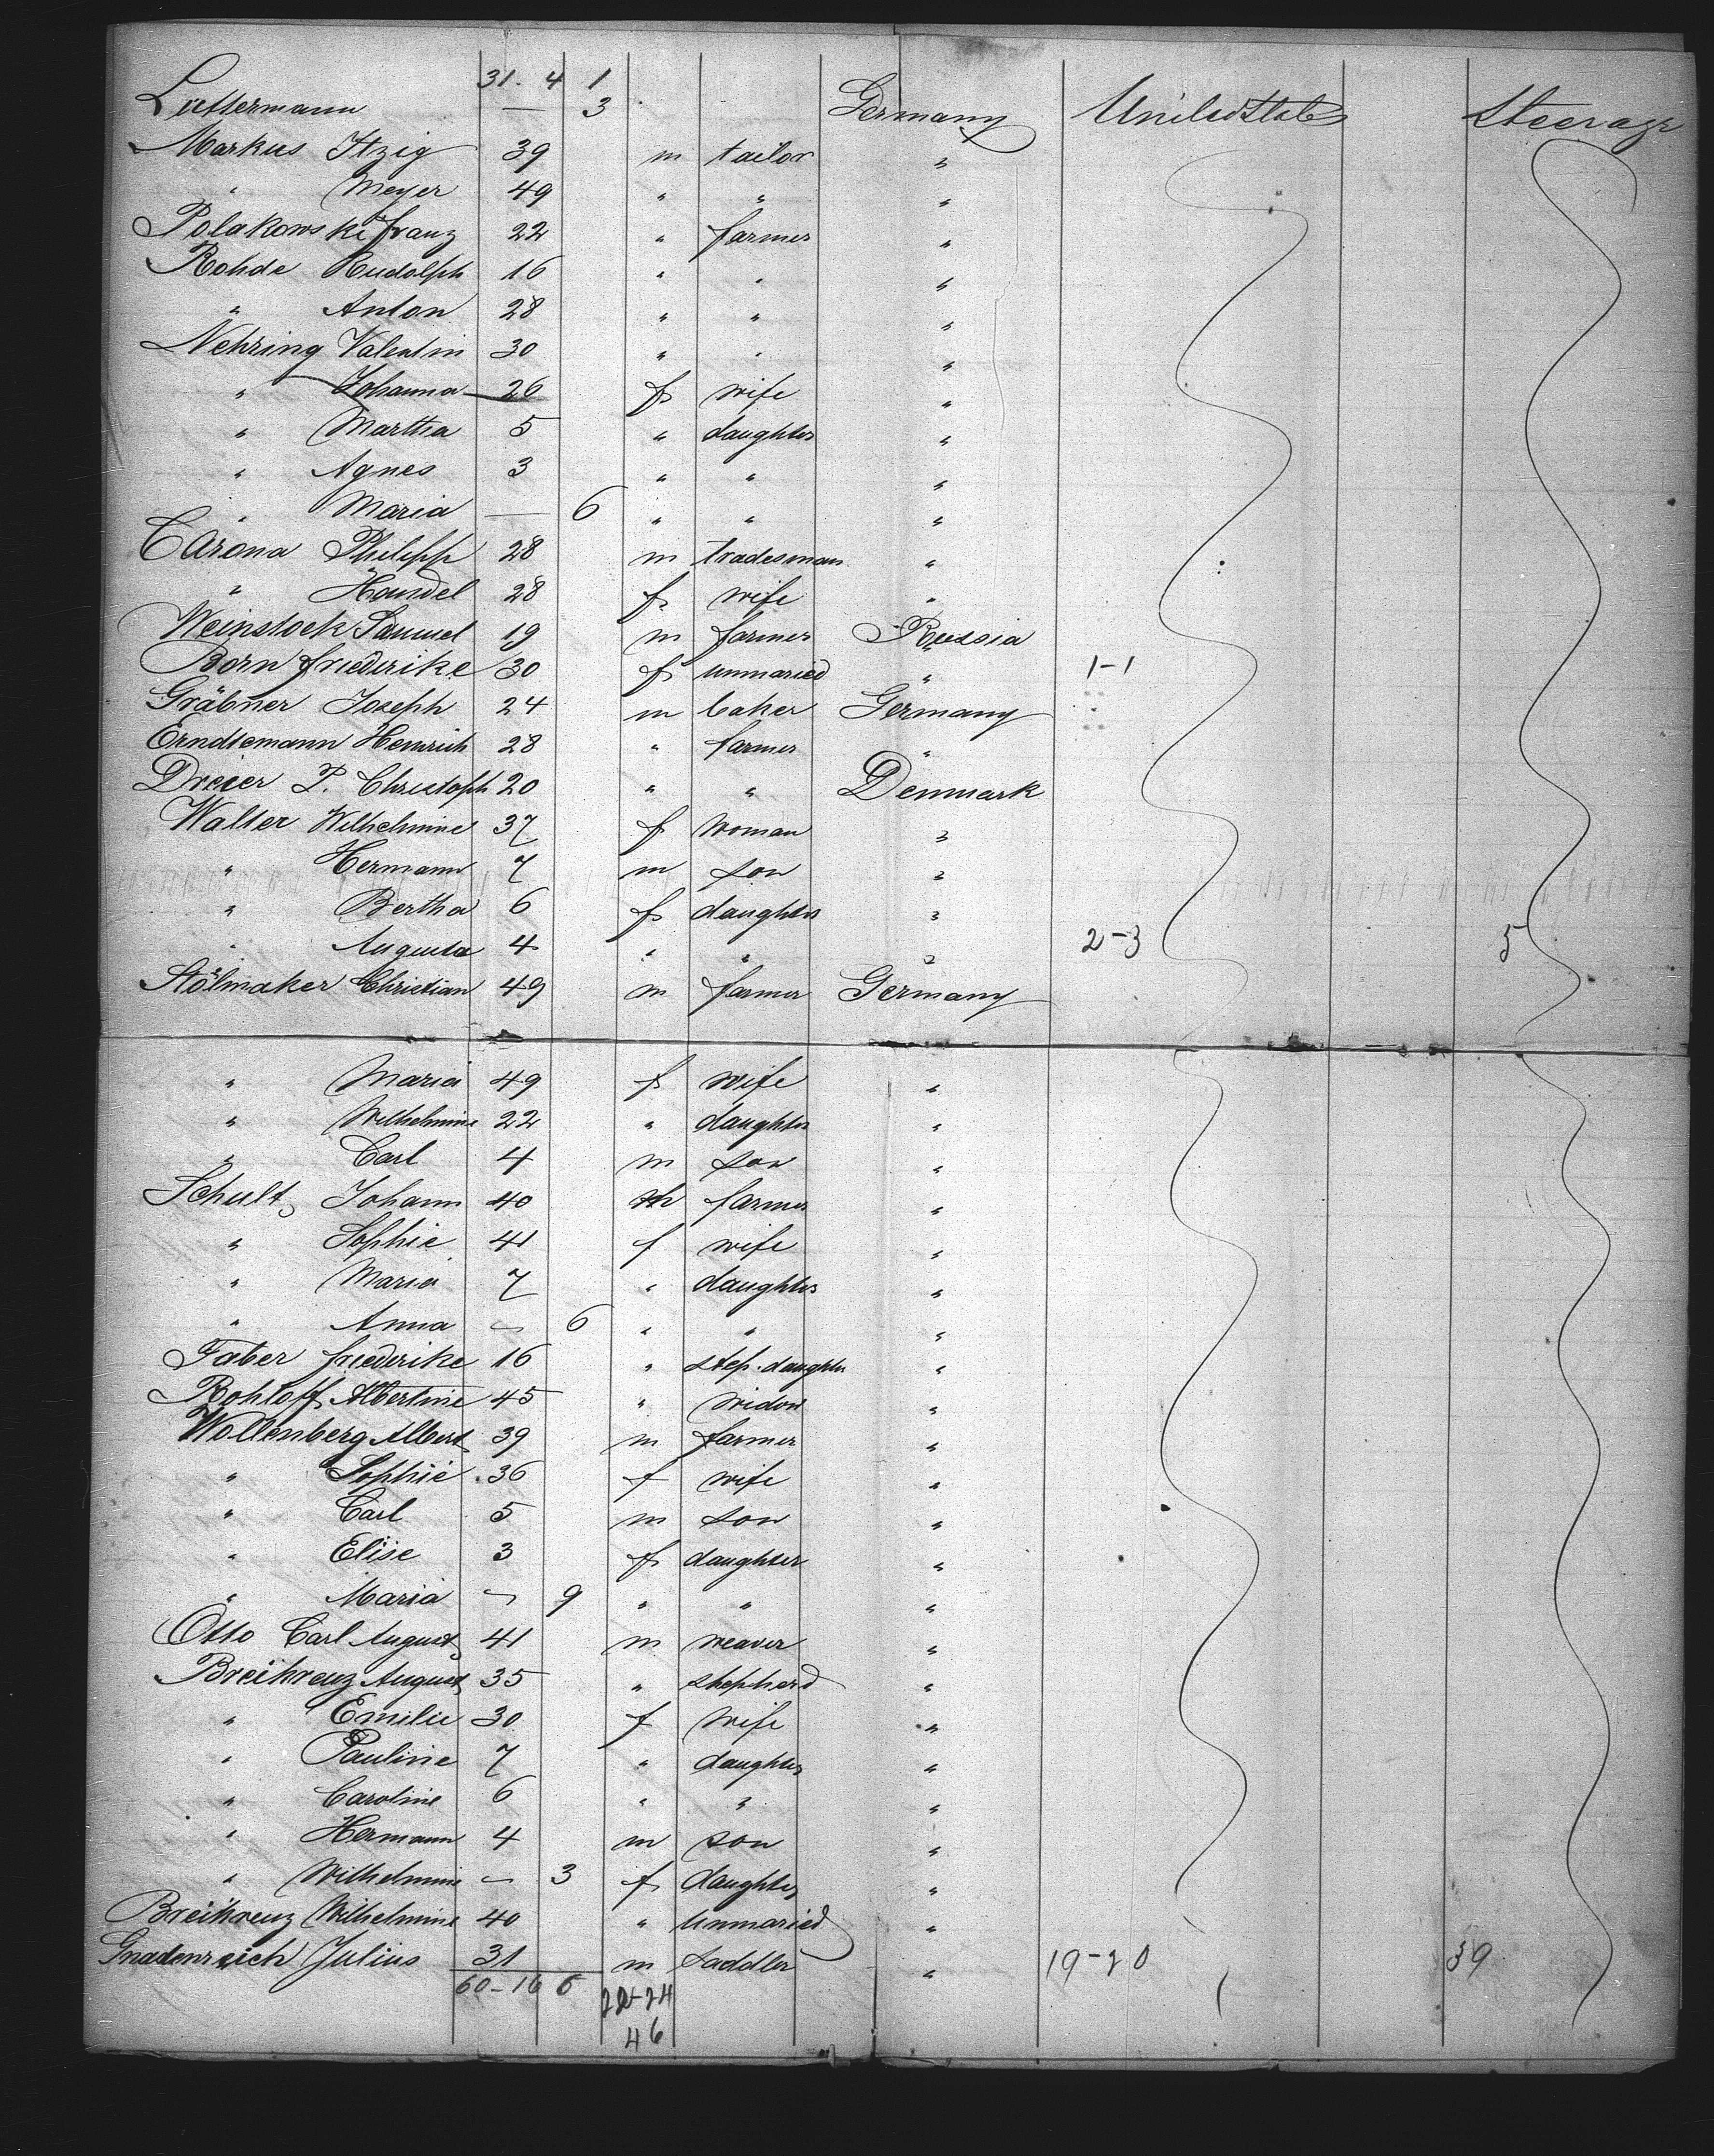 31. 4 1
Lüttermann — 3 Germany United States Steerage
Markus Itzig 39 m tailor "
" Meyer 49 " " "
Polakowski Franz 22 " farmer "
Rohde Rudolph 16 " " "
" Anton 28 " " "
Nehring Valentin 30 " " "
" Johanna 26 f wife "
" Martha 5 " daughter "
" Agnes 3 " " "
" Maria — 6 " " "
Carona Philipp 28 m tradesman "
" Handel 28 f wife "
Weinstock Samuel 19 m farmer Russia
Born Friederike 30 f unmaried " 1-1
Gräbner Joseph 24 m baker Germany
Erndtemann Heinrich 28 " farmer "
Dreier P. Christoph 20 " " Denmark
Walter Wilhelmine 37 f woman "
" Hermann 7 m son "
" Bertha 6 f daughter "
" Augusta 4 " " " 2-3 5
Stölmaker Christian 49 m farmer Germany
" Maria 49 f wife "
" Wilhelmine 22 " daughter "
" Carl 4 m son "
Schult Johann 40 m farmer "
" Sophie 41 f wife "
" Maria 7 " daughter "
" Anna — 6 " " "
Faber Friederike 16 " step-daughter "
Rohloff Albertine 45 " widow "
Wollenberg Albert 39 m farmer "
" Sophie 36 f wife "
" Carl 5 m son "
" Elise 3 f daughter "
" Maria — 9 " " "
Otto Carl August 41 m weaver "
Breikreuz August 35 " shepherd "
" Emilie 30 f wife "
" Pauline 7 " daughter "
" Caroline 6 " " "
" Hermann 4 m son "
" Wilhelmine — 3 f daughter "
Breikreuz Wilhelmine 40 " unmaried "
Gnadenreich Julius 31 m saddler " 19-20 39
60-16 6 22-24
46